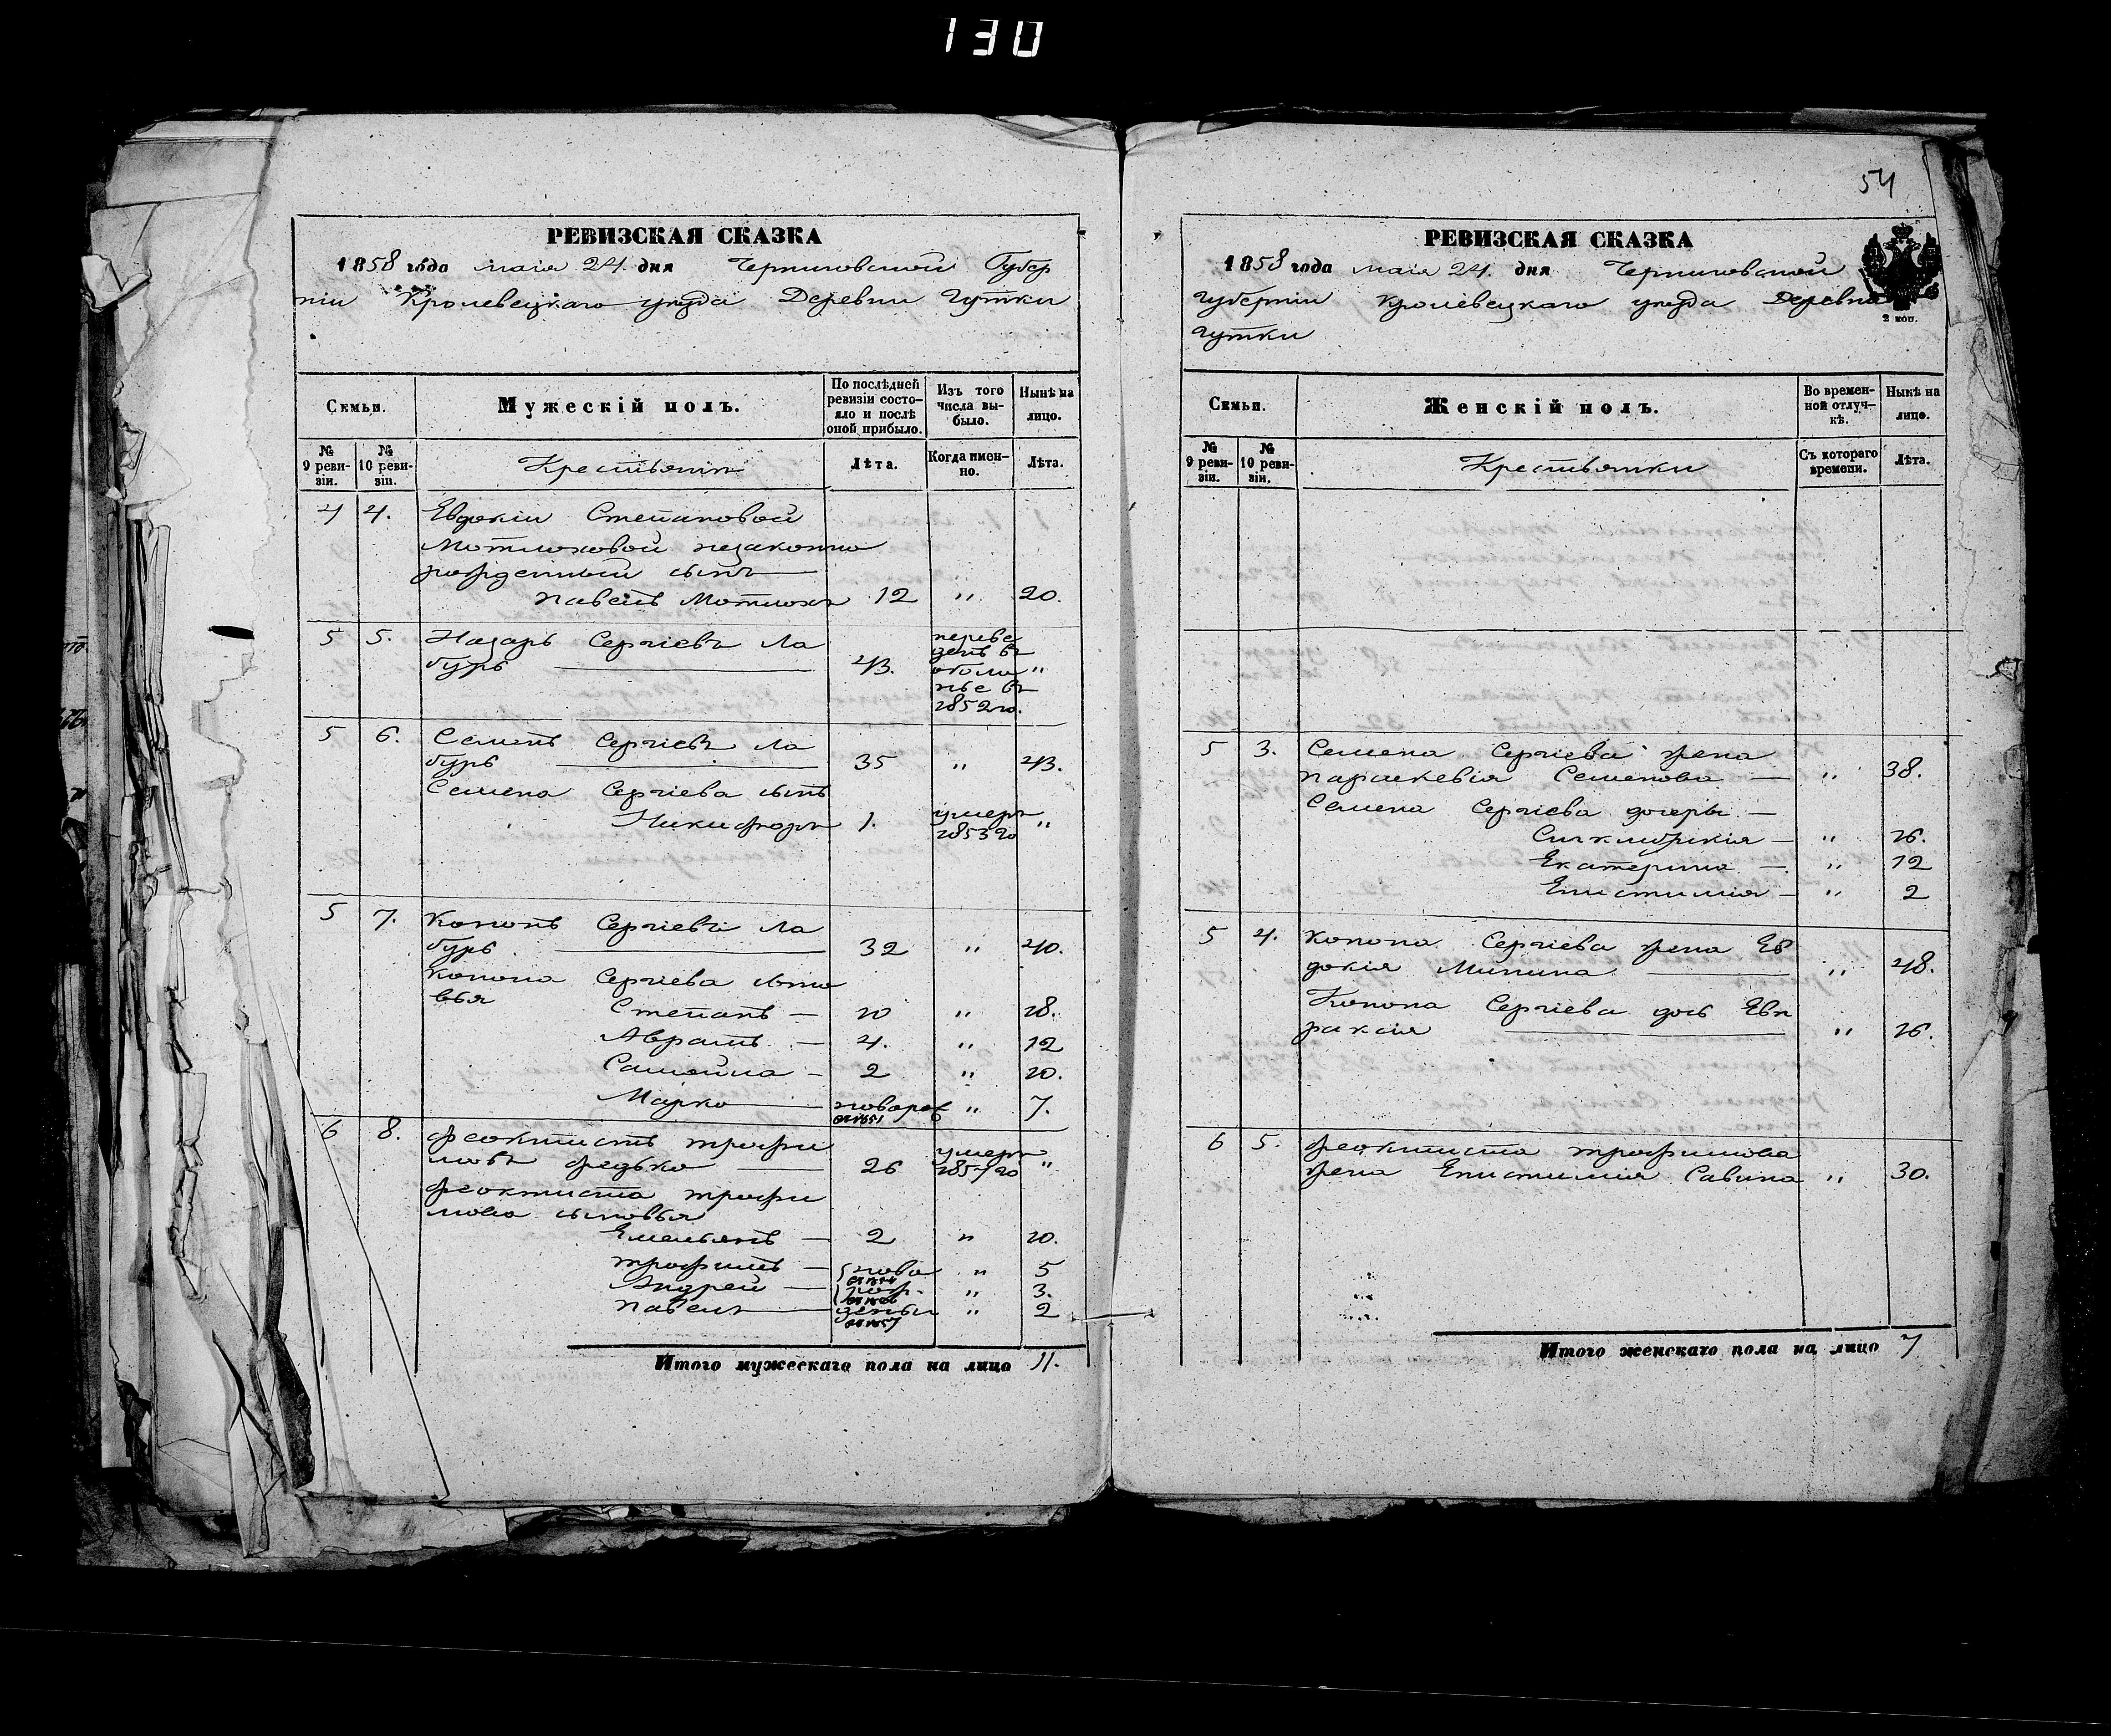 130
54
РЕВИЗСКАЯ СКАЗКА
1858 года маія 24. дня Черниговской Губер
ніи Кролевецкаго уезда Деревни Гутки
Семьи.
Мужескій полъ.
По послѣдней ревизіи состояло и послѣ оной прибыло.
Изъ того числа выбыло.
Нынѣ на лицо.
№ 9 ревизіи.
№ 10 ревизіи.
Крестьянъ
Лѣта.
Когда именно.
Лѣта.
4 4. Евдокіи Степановой
Мотлоховой незаконно
рожденный сынъ
Павелъ Мотлохъ 12 " 20.
5 5. Назаръ Сергіевъ Ла
буръ 43. переве
денъ въ
"
нье въ
1852 го.
5 6. Семенъ Сергіевъ Ла
буръ 35 " 43.
Семена Сергіева сынъ
Никифоръ 1. умеръ 1853 го "
5 7. Кононъ Сергіевъ Ла
буръ 32 " 40.
Конона Сергіева сыно
вья
Степанъ — 10 " 18.
Аврамъ — 4. " 12
Самойла — 2 " 10.
Марко — новорож 1851 " 7.
6 8. Феоктистъ Трофи
мовъ Федько — 26 умеръ 1857 го "
Феоктиста Трофи
мова сыновья
Емельянъ — 2 " 10.
Трофимъ — ново " 5
Андрей — рож " 3.
Павелъ — дены 1857 " 2
Итого мужескаго пола на лицо 11.
РЕВИЗСКАЯ СКАЗКА
1858 года маія 24. дня Черниговской
Губерніи Кролевецкаго уезда Деревни
Гутки
2 коп.
Семьи.
Женскій полъ.
Во временной отлучкѣ.
Нынѣ на лицо.
№ 9 ревизіи.
№ 10 ревизіи.
Крестьянки
Съ котораго времени.
Лѣта.
5 3. Семена Сергіева жена
Параскевія Семенова — " 38.
Семена Сергіева дочери —
Сигклитикія — " 16.
Екатерина — " 12
Епистимія — " 2
5 4. Конона Сергіева жена Ев
докія Минина " 48.
Конона Сергіева дочь Евп
раксія " 16.
6 5. Феоктиста Трофимова
жена Епистимія Савина " 30.
Итого женскаго пола на лицо 7